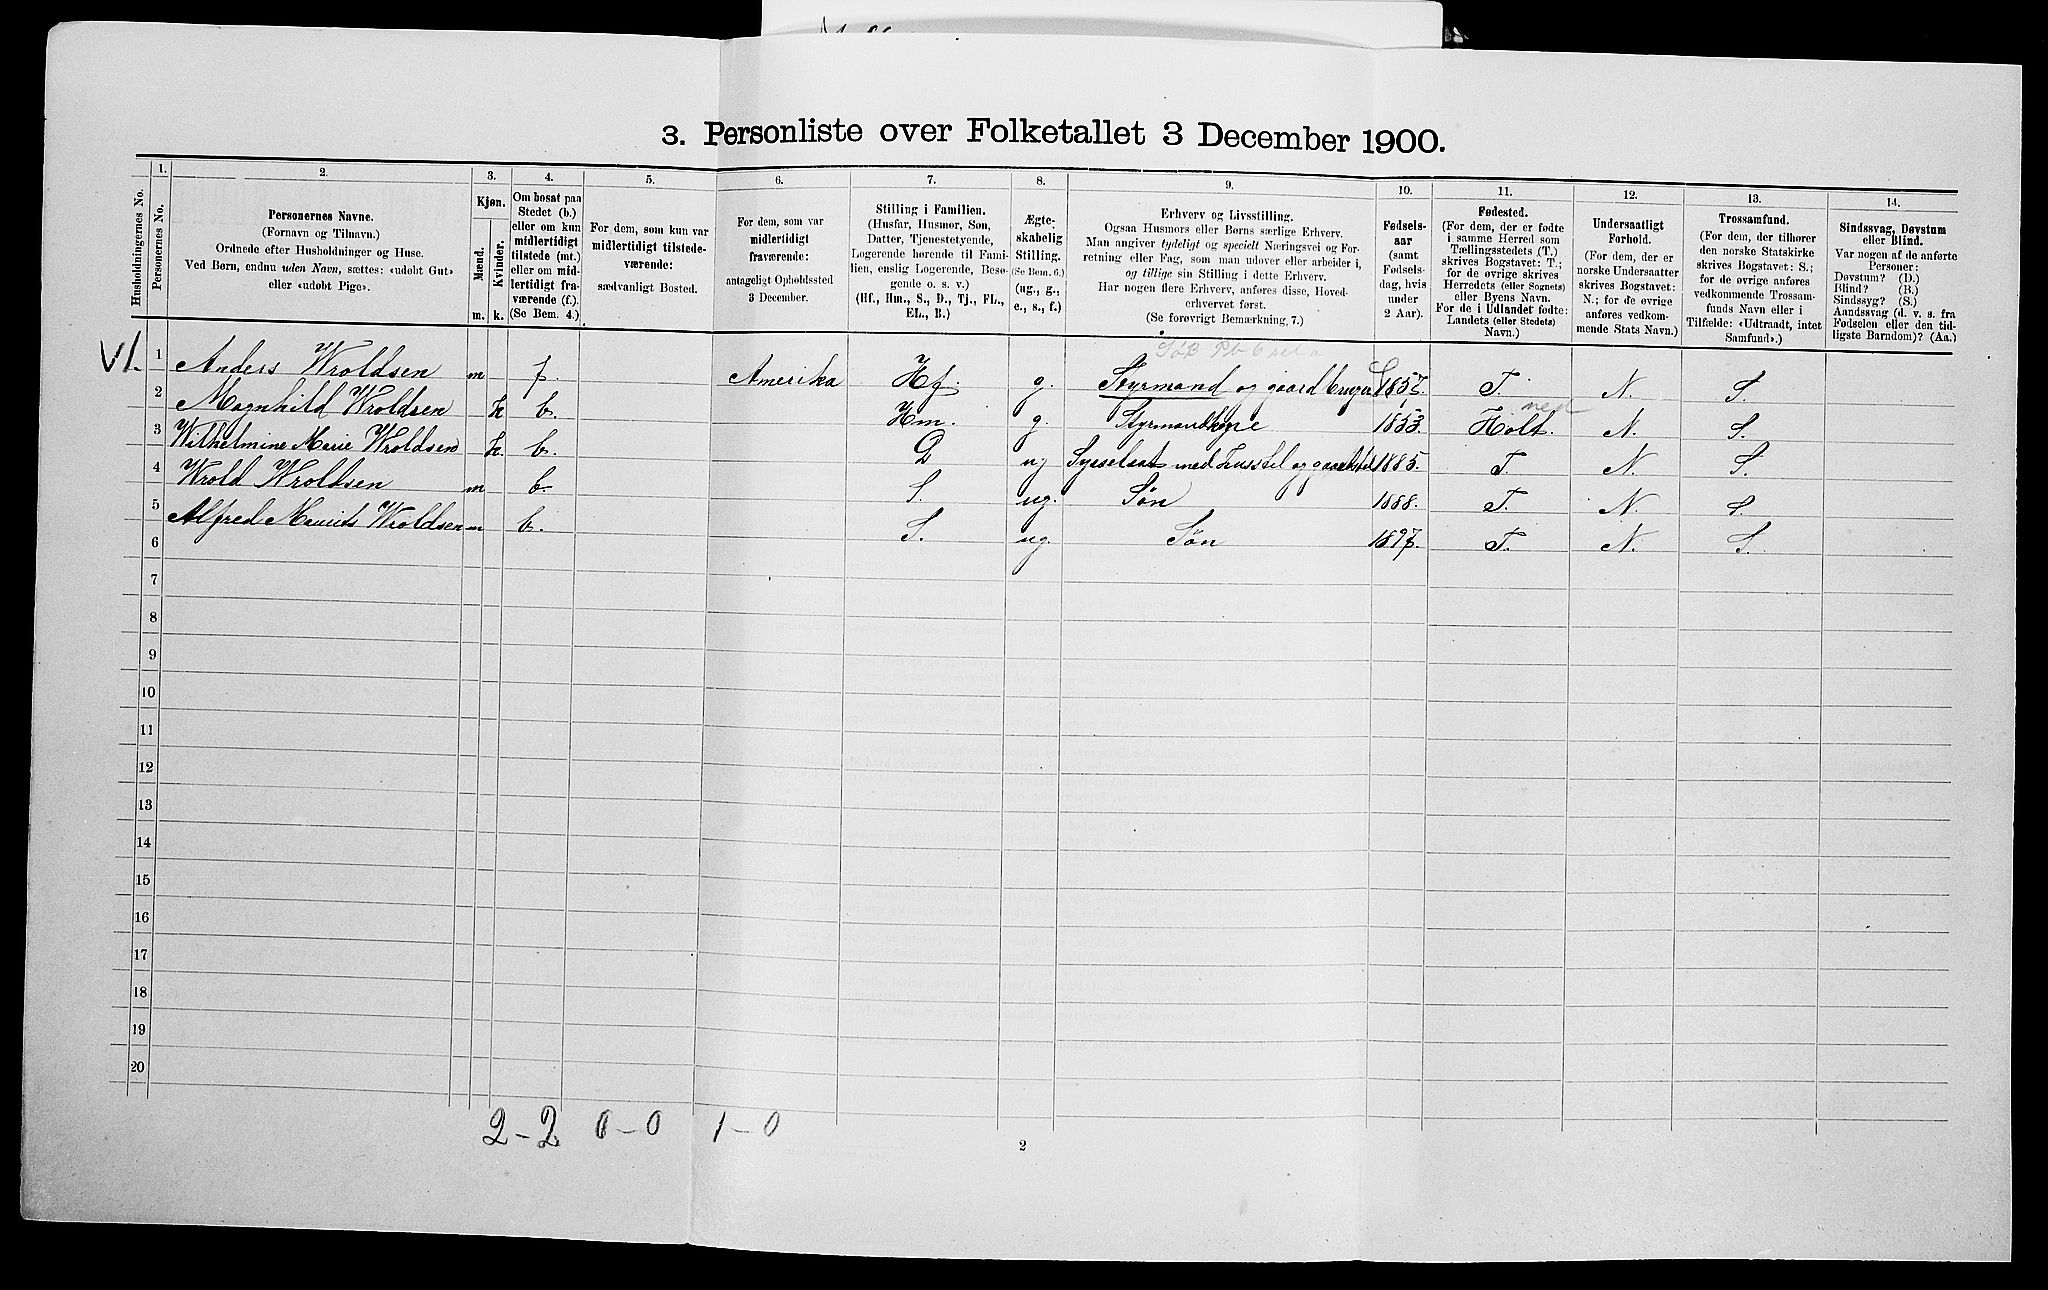 3. Personliste over Folketallet 3 December 1900.
1. 2. 3. 4. 5. 6. 7. 8. 9. 10. 11. 12. 13. 14.
Husholdningernes No.
Personernes No.
Personernes Navne.
(Fornavn og Tilnavn.)
Ordnede efter Husholdninger og Huse.
Ved Børn, endnu uden Navn, sættes: «udøbt Gut»
eller «udøbt Pige».
Kjøn.
Mænd.
Kvinder.
m. k.
Om bosat paa
Stedet (b.)
eller om kun
midlertidigt
tilstede (mt.)
eller om mid-
lertidigt fra-
værende (f.).
(Se Bem. 4.)
For dem, som kun var
midlertidigt tilstede-
værende:
sædvanligt Bosted.
For dem, som var
midlertidigt
fraværende:
antageligt Opholdssted
3 December.
Stilling i Familien.
(Husfar, Husmor, Søn,
Datter, Tjenestetyende,
Logerende hørende til Fami-
lien, enslig Logerende, Besø-
gende o. s. v.)
(Hf., Hm., S., D., Tj., FL.,
EL., B.)
Ægte-
skabelig
Stilling.
(Se Bem. 6.)
(ug., g.,
e., s., f.)
Erhverv og Livsstilling.
Ogsaa Husmors eller Børns særlige Erhverv.
Man angiver tydeligt og specielt Næringsvei og For-
retning eller Fag, som man udover eller arbeider i,
og tillige sin Stilling i dette Erhverv.
Har nogen flere Erhverv, anføres disse, Hoved-
erhvervet først.
(Se forøvrigt Bemærkning, 7.)
Fødsels-
aar
(samt
Fødsels-
dag, hvis
under
2 Aar).
Fødested.
(For dem, der er fødte
i samme Herred som
Tællingsstedets (T.)
skrives Bogstavet: T.;
for de øvrige skrives
Herredets (eller Sognets)
eller Byens Navn.
For de i Udlandet fødte:
Landets (eller Stedets)
Navn.)
Undersaatligt
Forhold.
(For dem, der er
norske Undersaatter
skrives Bogstavet:
N.; for de øvrige
anføres vedkom-
mende Stats Navn.)
Trossamfund.
(For dem, der tilhører
den norske Statskirke
skrives Bogstavet: S.;
for de øvrige anføres
vedkommende Trossam-
funds Navn eller i
Tilfælde: «Udtraadt, intet
Samfund».)
Sindssvag, Døvstum
eller Blind.
Var nogen af de anførte
Personer:
Døvstum? (D.)
Blind? (B.)
Sindssyg? (S.)
Aandssvag (d. v. s. fra
Fødselen eller den tid-
ligste Barndom)? (Aa.)
VI. 1 Anders Wroldsen m f. Amerika Hf. g. Styrmand og gaardbruger 1857. T. N. S.
2 Magnhild Wroldsen k b. Hm. g. Styrmandkone 1853. Holt. N. S.
3 Wilhelmine Marie Wroldsen k. b. D ug Sysselsat med husstel og 1885. T. N. S.
4 Wrold Wroldsen m b. S. ug. Søn 1888. T. N. S.
5 Alfred Maurits Wroldsen m b. S. ug. Søn 1897. T. N. S.
6
7
8
9
10
11
12
13
14
15
16
17
18
19
20
2-2 0-0 1-0
2